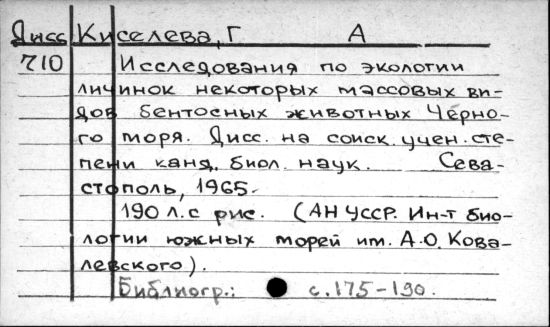 Дисс Киселева, Г А
710 Исследования по экологии
личинок некоторых массовых ви-
дов бентосных животных Черно-
го моря. Дисс. на соиск. учен. сте-
пени канд. биол. наук. Сева-
стополь, 1965.
190 л. с рис. (АН УССР. Ин-т био-
логии южных морей им. А.О. Кова-
левского).
Библиогр.: с. 175-190.